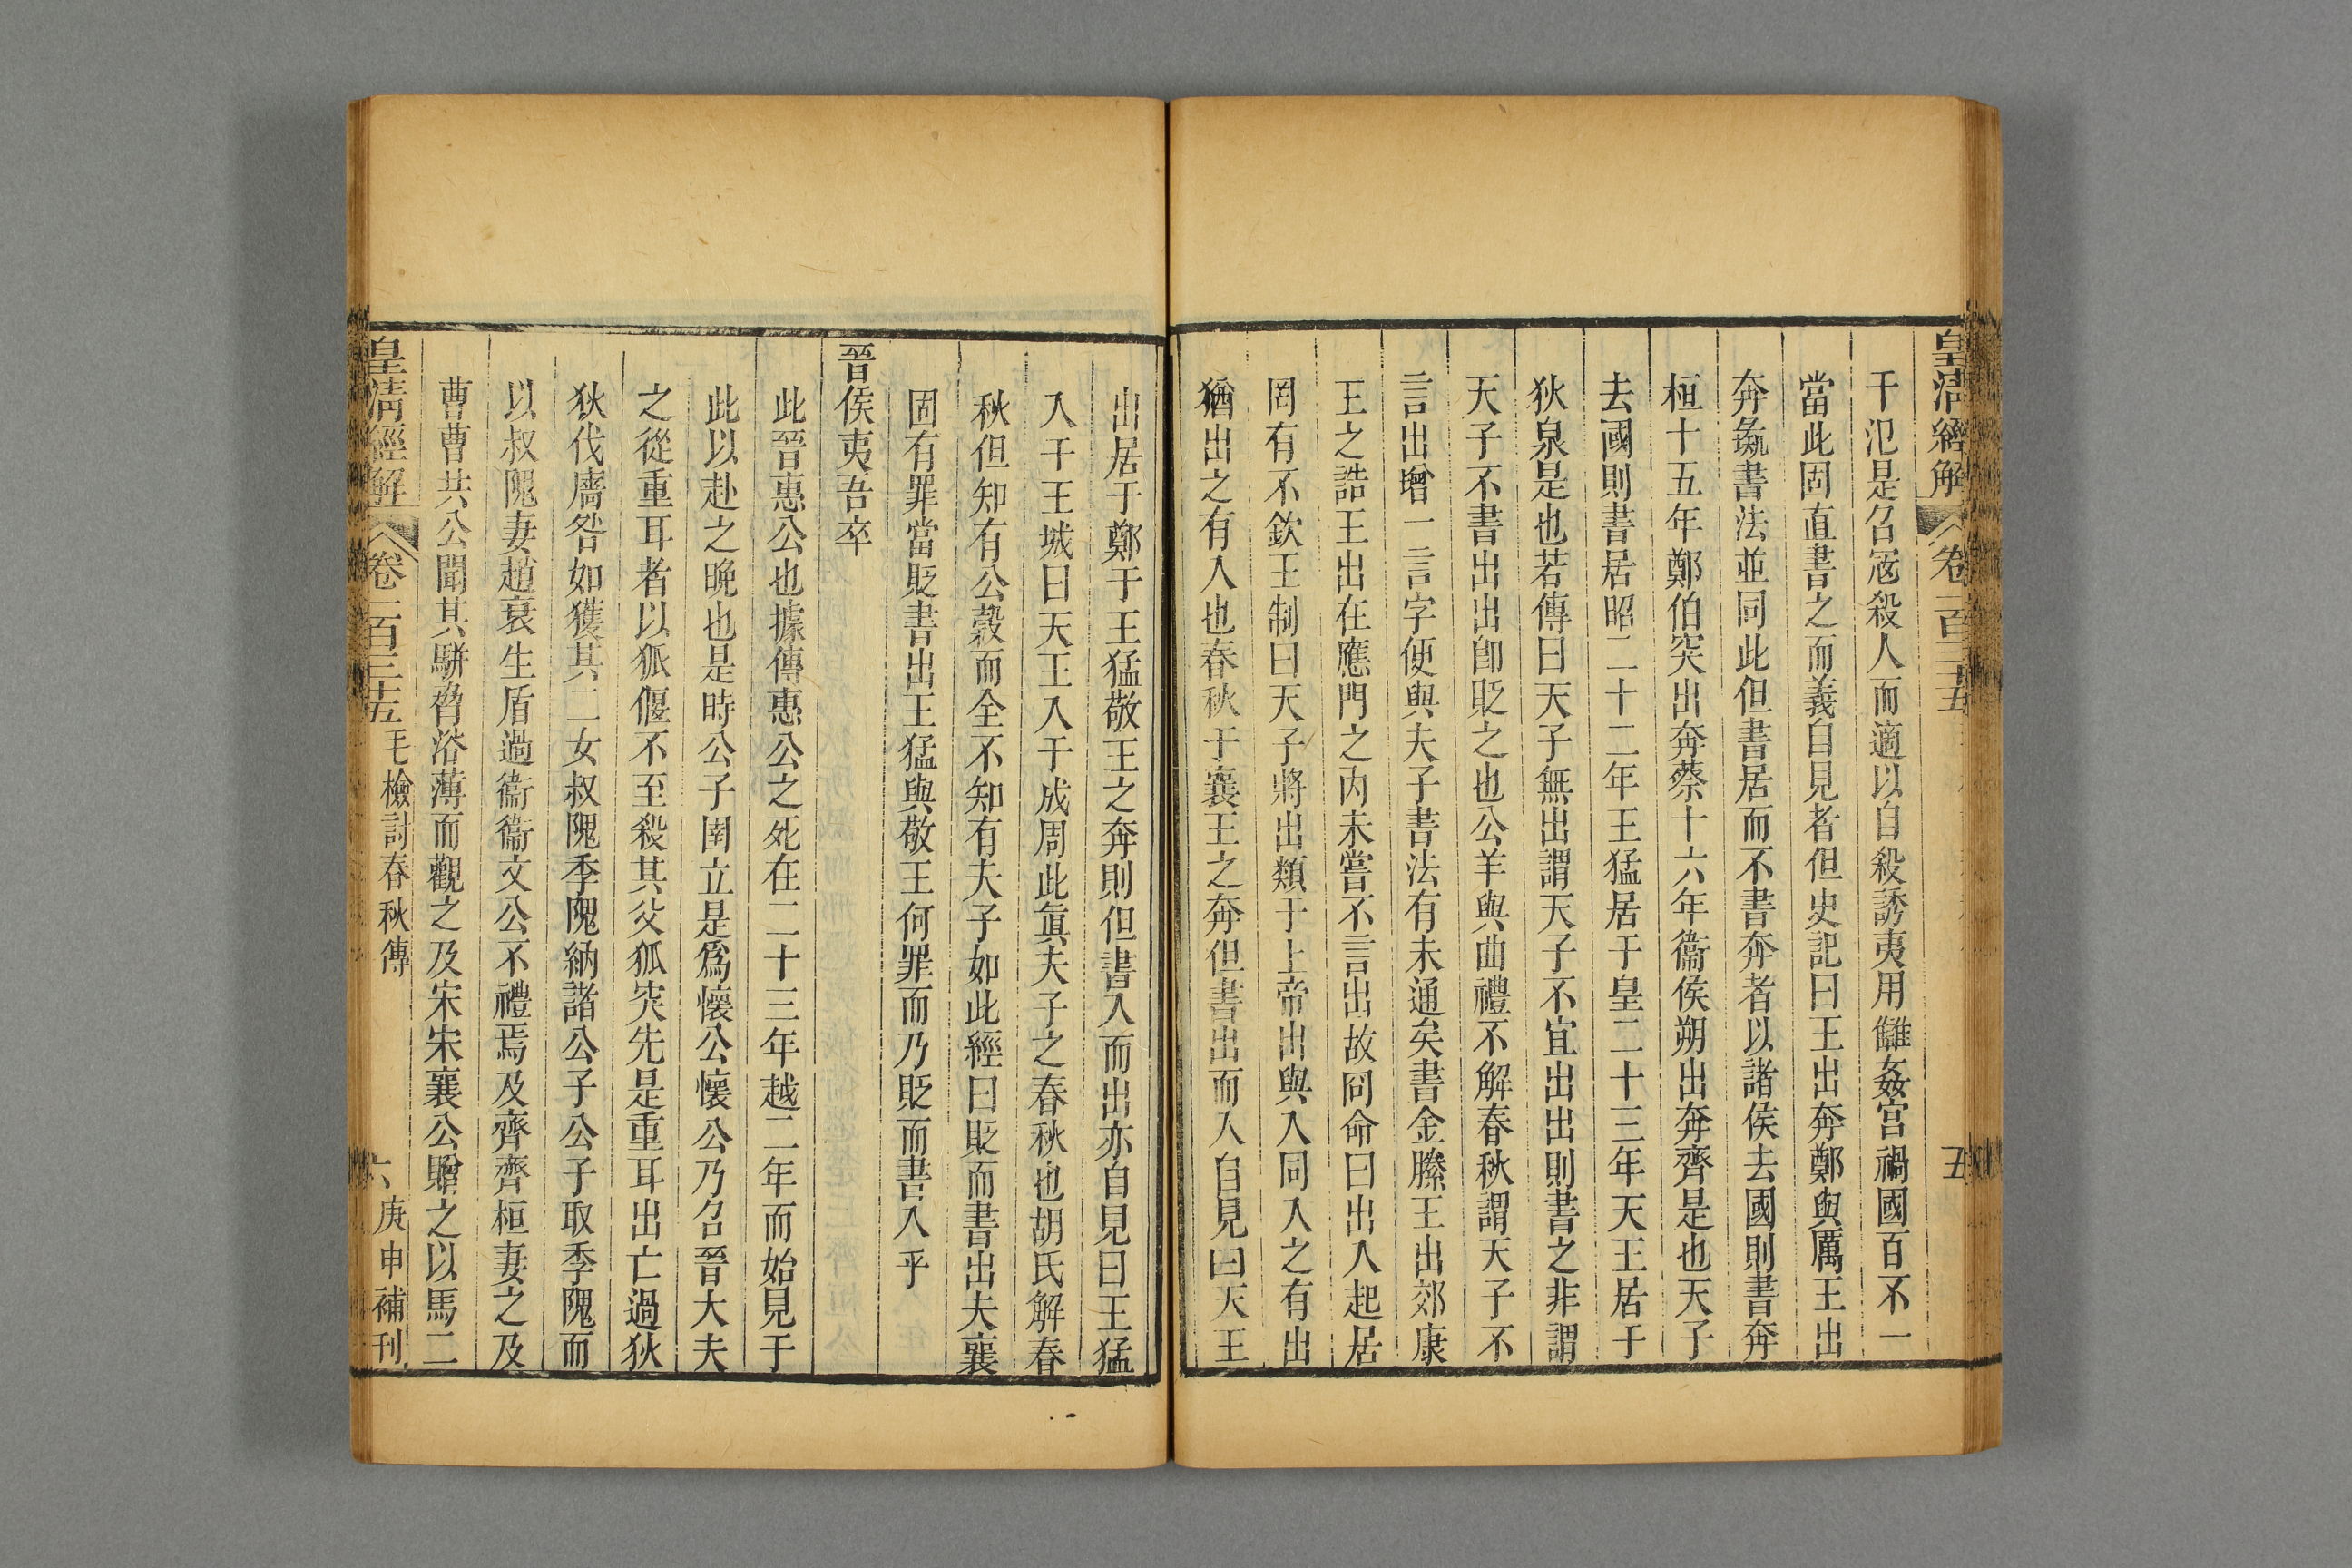 皇清經解 卷一百三十五 五
于氾是召寇殺人而適以自殺誘夷用讎姦宮禍國百不一
當此固直書之而義自見者但史記曰王出奔鄭與厲王出
奔彘書法並同此但書居而不書奔者以諸侯去國則書奔
桓十五年鄭伯突出奔蔡十六年衞侯朔出奔齊是也天子
去國則書居昭二十二年王猛居于皇二十三年天王居于
狄泉是也若傳曰天子無出謂天子不宜出出則書之非謂
天子不書出出卽貶之也公羊與曲禮不解春秋謂天子不
言出增一言字便與夫子書法有未通矣書金縢王出郊康
王之誥王出在應門之內未嘗不言出故冏命曰出入起居
罔有不欽王制曰天子將出類于上帝出與入同入之有出
猶出之有入也春秋于襄王之奔但書出而入自見曰天王
出居于鄭于王猛敬王之奔則但書入而出亦自見曰王猛
入于王城曰天王入于成周此眞夫子之春秋也胡氏解春
秋但知有公穀而全不知有夫子如此經曰貶而書出夫襄
固有罪當貶書出王猛與敬王何罪而乃貶而書入乎
晉侯夷吾卒
此晉惠公也據傳惠公之死在二十三年越二年而始見于
此以赴之晚也是時公子圉立是爲懷公懷公乃召晉大夫
之從重耳者以狐偃不至殺其父狐突先是重耳出亡過狄
狄伐廧咎如獲其二女叔隗季隗納諸公子公子取季隗而
以叔隗妻趙衰生盾過衞衞文公不禮焉及齊齊桓妻之及
曹曹共公聞其駢脅浴薄而觀之及宋宋襄公贈之以馬二
皇清經解 卷一百三十五 毛檢討春秋傳 六 庚申補刊